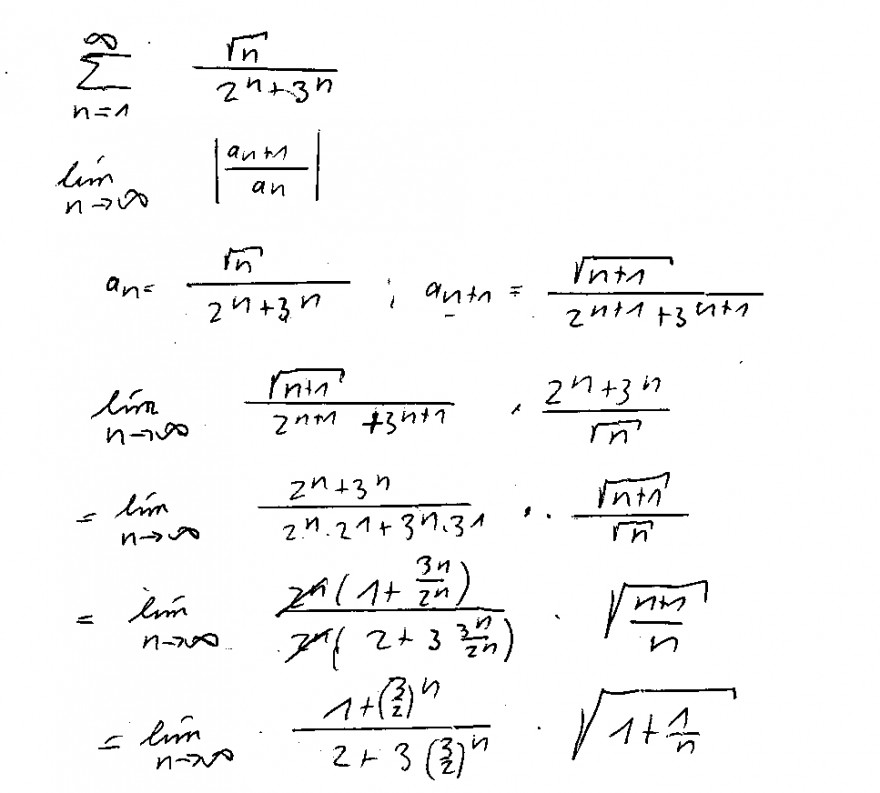 ∞
∑ √n / (2^n + 3^n)
n=1
lim n→∞ |a_{n+1} / a_n|
a_n = √n / (2^n + 3^n) ; a_{n+1} = √(n+1) / (2^{n+1} + 3^{n+1})
lim n→∞ √(n+1) / (2^{n+1} + 3^{n+1}) · (2^n + 3^n) / √n
= lim n→∞ (2^n + 3^n) / (2^n · 2^1 + 3^n · 3^1) · √(n+1) / √n
= lim n→∞ 2^n (1 + 3^n / 2^n) / 2^n (2 + 3 3^n / 2^n) · √((n+1) / n)
= lim n→∞ (1 + (3/2)^n) / (2 + 3 (3/2)^n) · √(1 + 1/n)